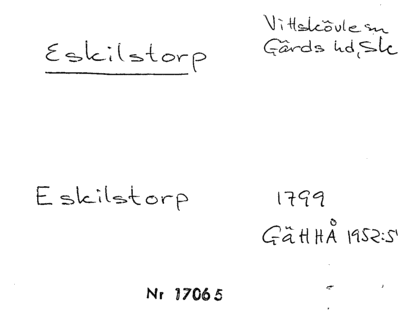 Eskilstorp
Vittskövle sn
Gärds hd, Sk
Eskilstorp
1799
GäHHÅ 1952:5
Nr 17065